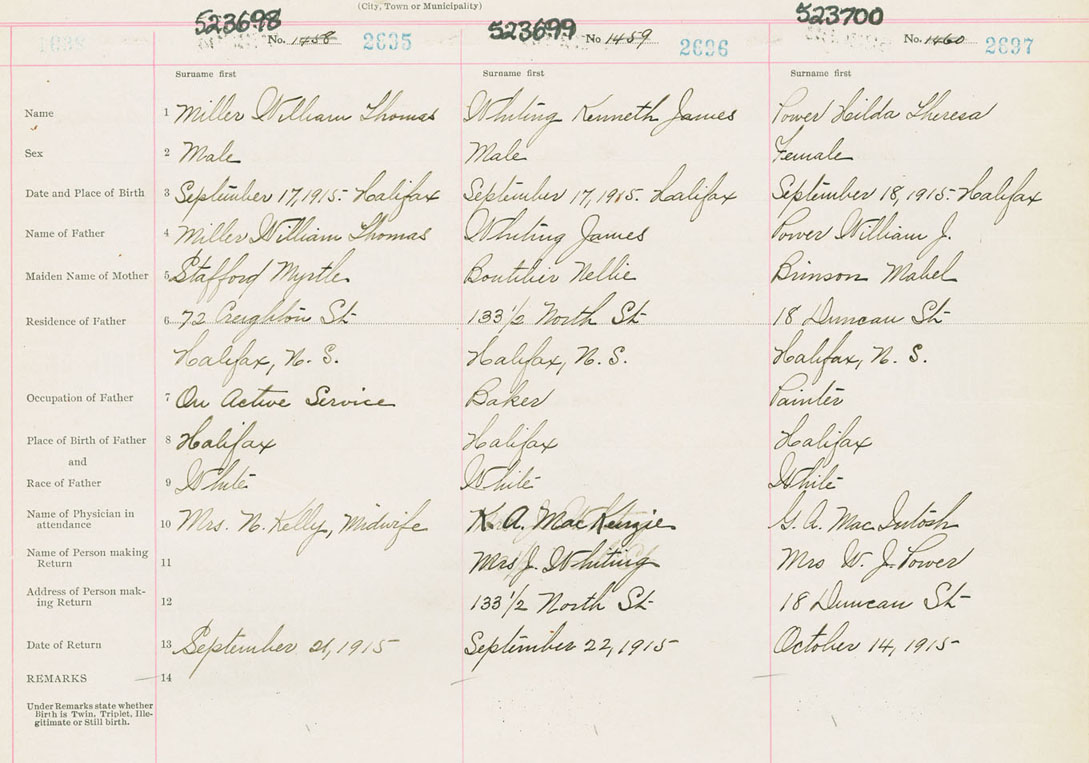 (City, Town or Municipality)
523698 523699 523700
No. 1458 2695 No 1459 2696 No. 1460 2697
Surname first Surname first Surname first
Name 1 Miller William Thomas Whiting Kenneth James Power Hilda Theresa
Sex 2 Male Male Female
Date and Place of Birth 3 September 17, 1915. Halifax September 17, 1915. Halifax September 18, 1915. Halifax
Name of Father 4 Miller William Thomas Whiting James Power William J.
Maiden Name of Mother 5 Stafford Myrtle Boutilier Nellie Brinson Mabel
Residence of Father 6 72 Creighton St 133 1/2 North St 18 Duncan St
Halifax, N. S. Halifax, N. S. Halifax, N. S.
Occupation of Father 7 On Active Service Baker Painter
Place of Birth of Father 8 Halifax Halifax Halifax
and
Race of Father 9 White White White
Name of Physician in
attendance 10 Mrs. N. Kelly, Midwife K. A. MacKenzie G. A. MacIntosh
Name of Person making
Return 11 Mrs J. Whiting Mrs W. J. Power
Address of Person mak-
ing Return 12 133 1/2 North St 18 Duncan St
Date of Return 13 September 21, 1915 September 22, 1915 October 14, 1915
REMARKS 14
Under Remarks state whether
Birth is Twin, Triplet, Ille-
gitimate or Still birth.